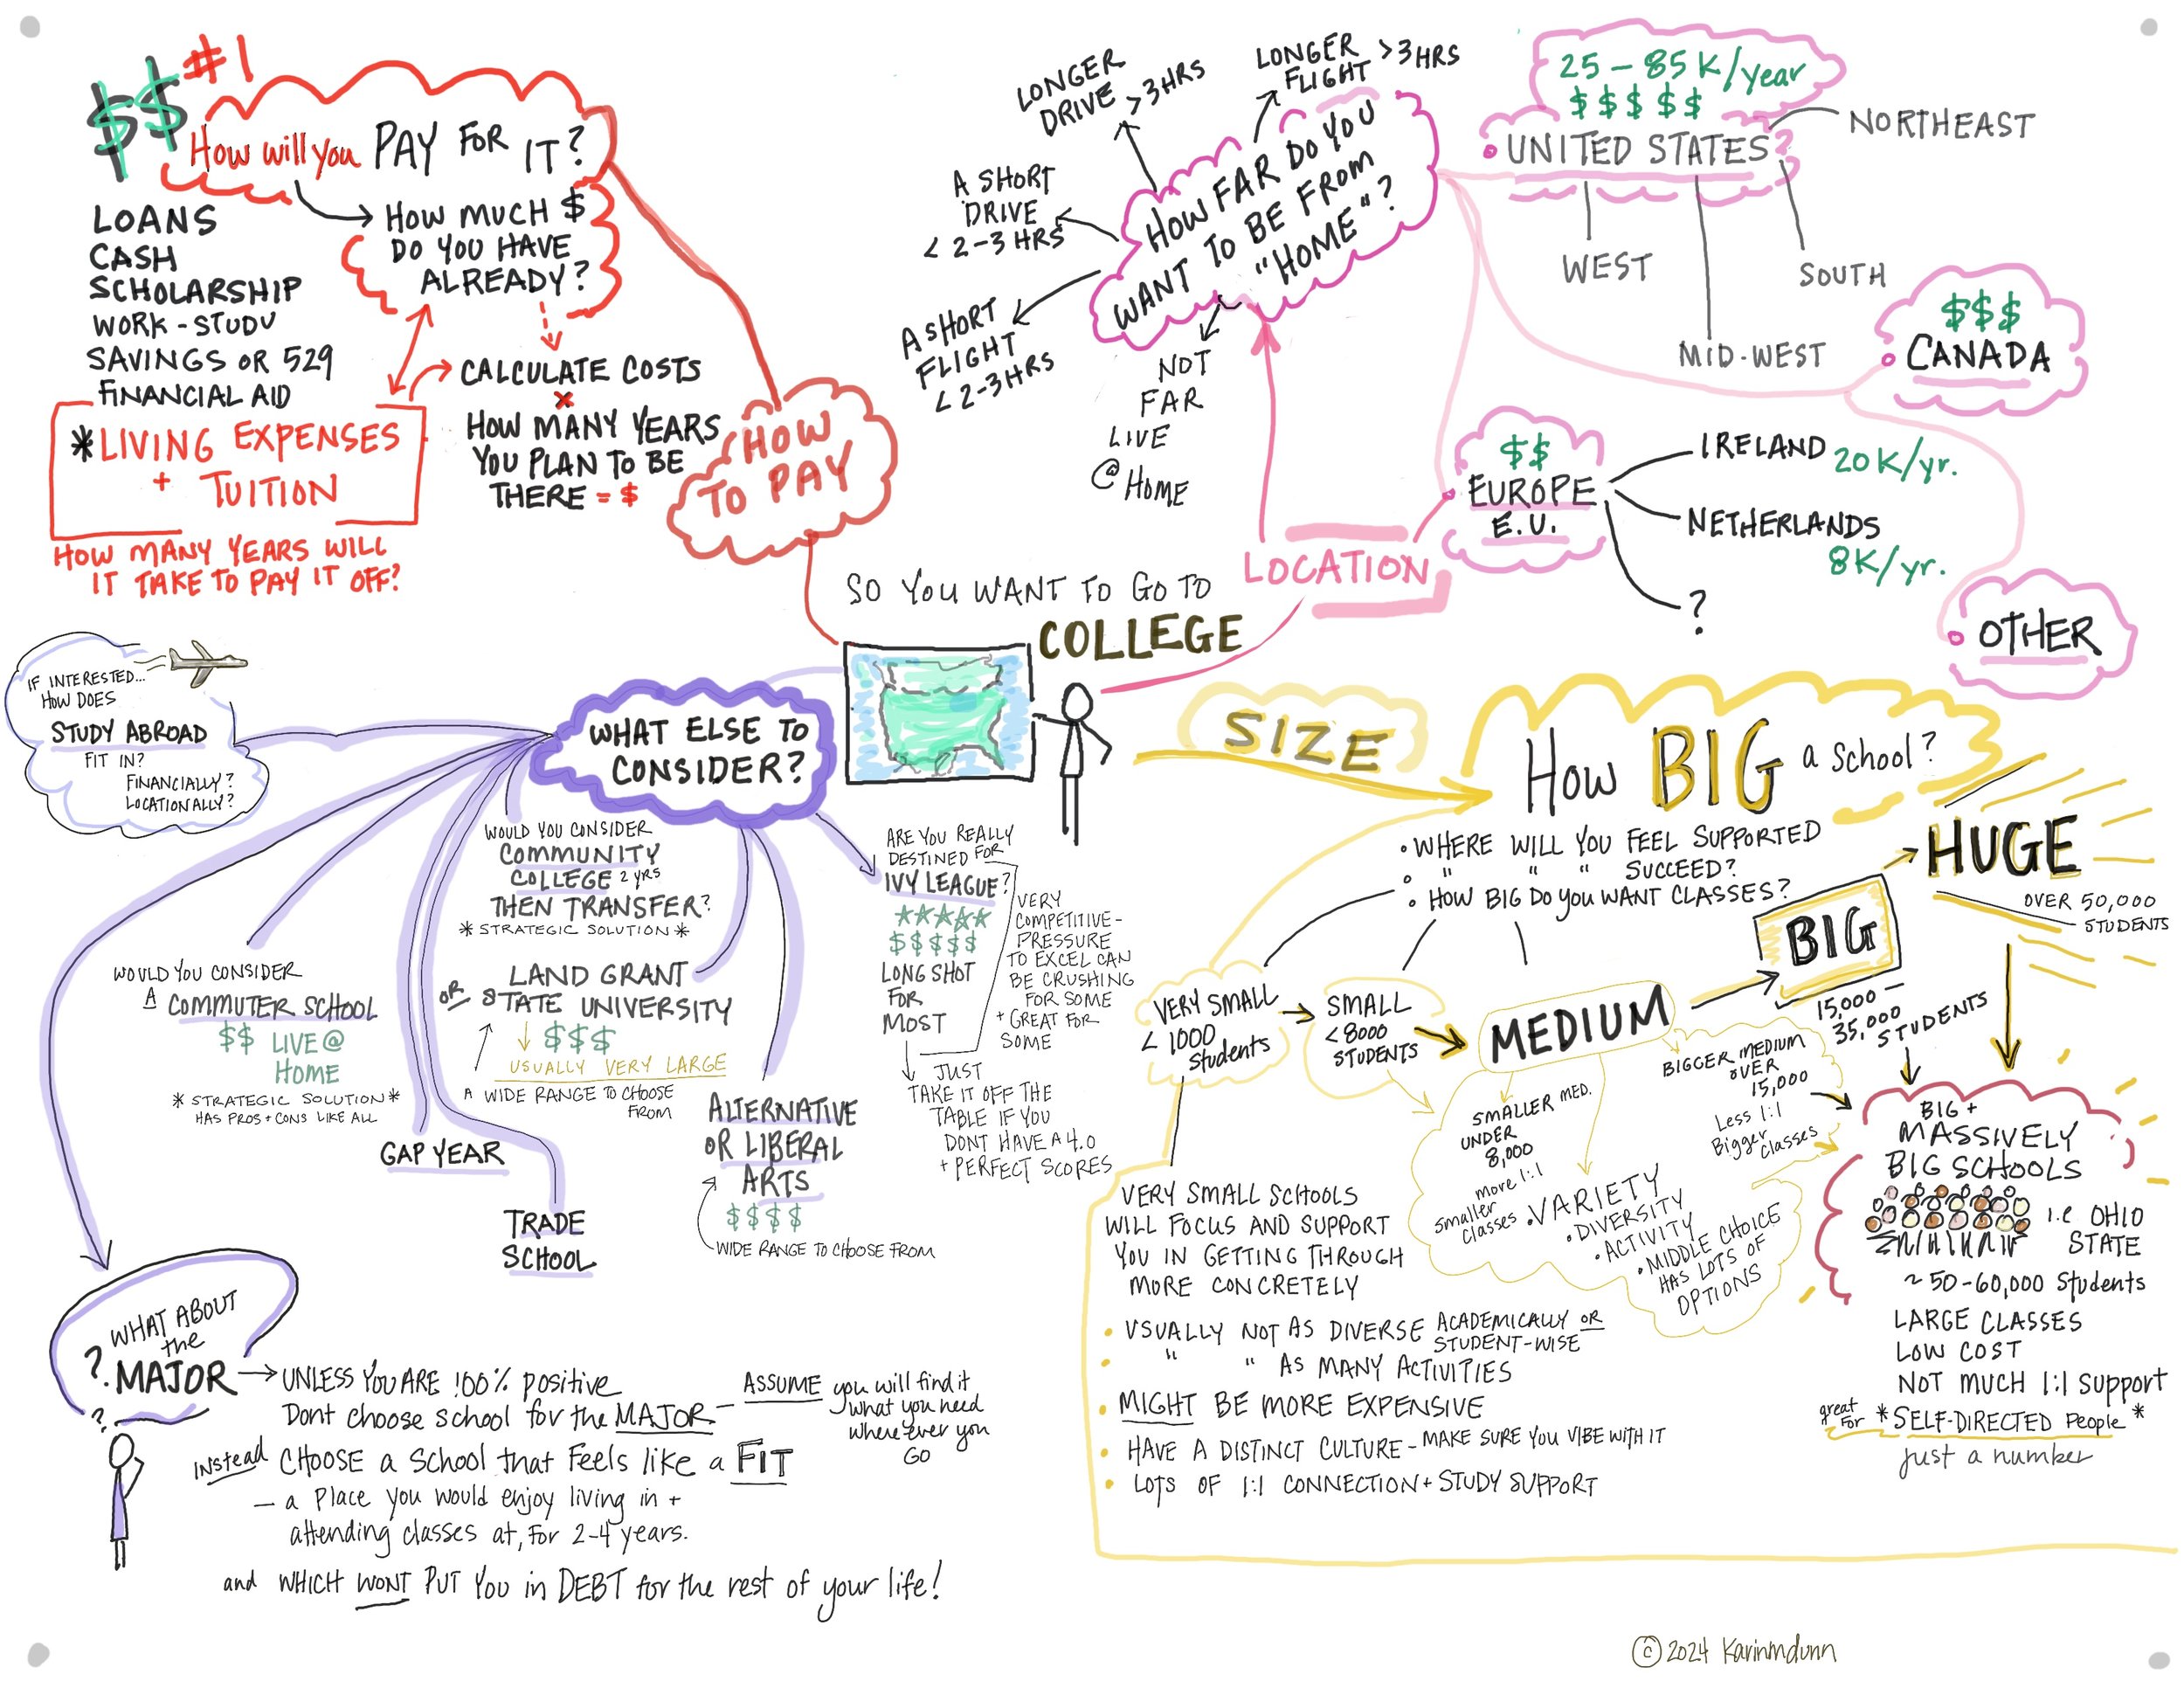 $$ #1
How will you PAY FOR IT?
LOANS
CASH
SCHOLARSHIP
WORK-STUDY
SAVINGS OR 529
FINANCIAL AID
HOW MUCH $
DO YOU HAVE
ALREADY?
CALCULATE COSTS
x
HOW MANY YEARS
YOU PLAN TO BE
THERE = $
*LIVING EXPENSES
+ TUITION
HOW MANY YEARS WILL
IT TAKE TO PAY IT OFF?
HOW
TO PAY
SO YOU WANT TO GO TO
COLLEGE
LOCATION
HOW FAR DO YOU
WANT TO BE FROM
"HOME"?
LONGER
DRIVE >3HRS
LONGER >3HRS
FLIGHT
A SHORT
DRIVE
< 2-3 HRS
A SHORT
FLIGHT
< 2-3HRS
NOT
FAR
LIVE
@ HOME
25-85K/year
$$$$$
UNITED STATES?
NORTHEAST
WEST
SOUTH
MID-WEST
$$$
CANADA
$$
EUROPE
E.U.
IRELAND 20K/yr.
NETHERLANDS
8K/yr.
?
OTHER
SIZE
How BIG a school?
• WHERE WILL YOU FEEL SUPPORTED
• " " " SUCCEED?
• HOW BIG DO YOU WANT CLASSES?
VERY SMALL
< 1000
students
SMALL
<8000
STUDENTS
MEDIUM
BIG
15,000 -
35,000
STUDENTS
HUGE
OVER 50,000
STUDENTS
SMALLER MED.
UNDER
8,000
more 1:1
smaller
classes
BIGGER MEDIUM
OVER
15,000
Less 1:1
Bigger
classes
• VARIETY
• DIVERSITY
• ACTIVITY
• MIDDLE CHOICE
HAS LOTS OF
OPTIONS
BIG +
MASSIVELY
BIG SCHOOLS
i.e OHIO
STATE
~50-60,000 students
LARGE CLASSES
LOW COST
NOT MUCH 1:1 support
great
for *SELF-DIRECTED People*
just a number
VERY SMALL SCHOOLS
WILL FOCUS AND SUPPORT
YOU IN GETTING THROUGH
MORE CONCRETELY
• USUALLY NOT AS DIVERSE ACADEMICALLY OR
STUDENT-WISE
• " " AS MANY ACTIVITIES
• MIGHT BE MORE EXPENSIVE
• HAVE A DISTINCT CULTURE - MAKE SURE YOU VIBE WITH IT
• LOTS OF 1:1 CONNECTION + STUDY SUPPORT
WHAT ELSE TO
CONSIDER?
IF INTERESTED...
HOW DOES
STUDY ABROAD
FIT IN?
FINANCIALLY?
LOCATIONALLY?
WOULD YOU CONSIDER
A COMMUTER SCHOOL
$$ LIVE @
HOME
*STRATEGIC SOLUTION*
HAS PROS + CONS LIKE ALL
GAP YEAR
TRADE
SCHOOL
WOULD YOU CONSIDER
COMMUNITY
COLLEGE 2 YRS
THEN TRANSFER?
*STRATEGIC SOLUTION*
LAND GRANT
OR STATE UNIVERSITY
$$$
USUALLY VERY LARGE
A WIDE RANGE TO CHOOSE
FROM
ALTERNATIVE
OR LIBERAL
ARTS
$$$$
WIDE RANGE TO CHOOSE FROM
ARE YOU REALLY
DESTINED FOR
IVY LEAGUE?
$$$$$
LONG SHOT
FOR
MOST
VERY
COMPETITIVE-
PRESSURE
TO EXCEL CAN
BE CRUSHING
FOR SOME
+ GREAT FOR
SOME
JUST
TAKE IT OFF THE
TABLE IF YOU
DONT HAVE A 4.0
+ PERFECT SCORES
WHAT ABOUT
the
? MAJOR
?
UNLESS YOU ARE 100% positive
Dont choose school for the MAJOR -
ASSUME you will find it
what you need
where ever you
GO
instead CHOOSE a School that feels like a FIT
- a Place you would enjoy living in +
attending classes at, for 2-4 years.
and WHICH WONT PUT YOU in DEBT for the rest of your life!
© 2024 Karinmdunn